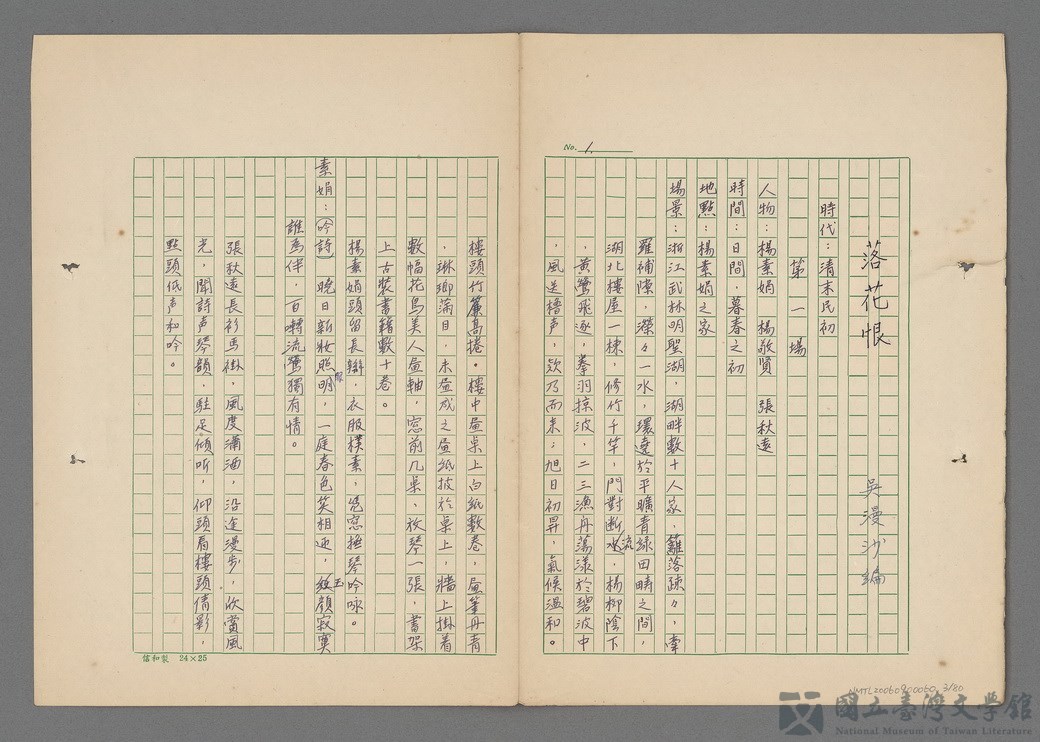 No. 1.
落花恨
吳漫沙編
時代：清末民初
第一場
人物：楊素娟　楊敬賢　張秋遠
時間：日間，暮春之初
地點：楊素娟之家
場景：湘江武林明聖湖，湖畔數十人家，籬落疎々，牽
羅補陳，濚々一水，環遶於平曠青綠田疇之間，
湖北樓屋一棟，修竹千竿，門對斷流，楊柳陰下
，黃鶯飛逐，拳羽掠波，二三漁舟蕩漾於碧波中
，風送櫓声，欸乃而來；旭日初昇，氣候溫和。
樓頭竹簾高捲。樓中晝桌上白紙數卷，晝筆丹青
，琳瑯滿目，未晝成之晝紙披於桌上，牆上掛着
數幅花鳥美人晝軸，窓前几桌，放琴一張，書架
上古裝書籍數十卷。
楊素娟頭留長辮，衣服樸素，凭窓撫琴吟咏。
素娟：（吟詩）曉日新妝照眼明，一庭春色笑相迎，玉顏寂寞
誰為伴，百轉流鶯獨有情。
張秋遠長衫馬褂，風度瀟洒，沿途漫步，欣賞風
光，聞詩声琴韻，駐足傾听，仰頭看樓頭倩影，
點頭低声和吟。
信和製　24×25
NMTL20060900060 3/80
國立臺灣文學館
National Museum of Taiwan Literature